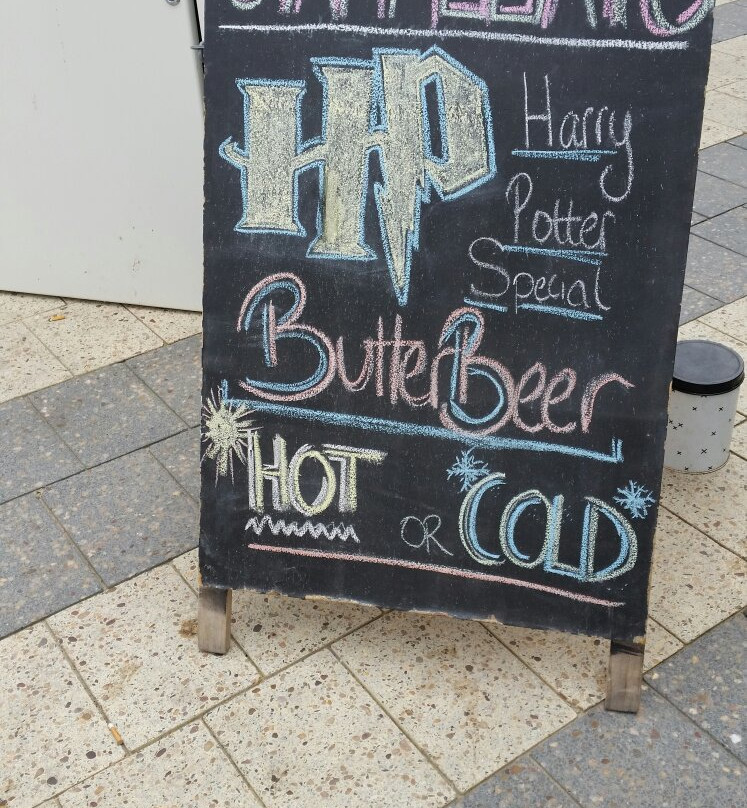 HP
Harry
Potter
Special
ButterBeer
HOT
OR COLD